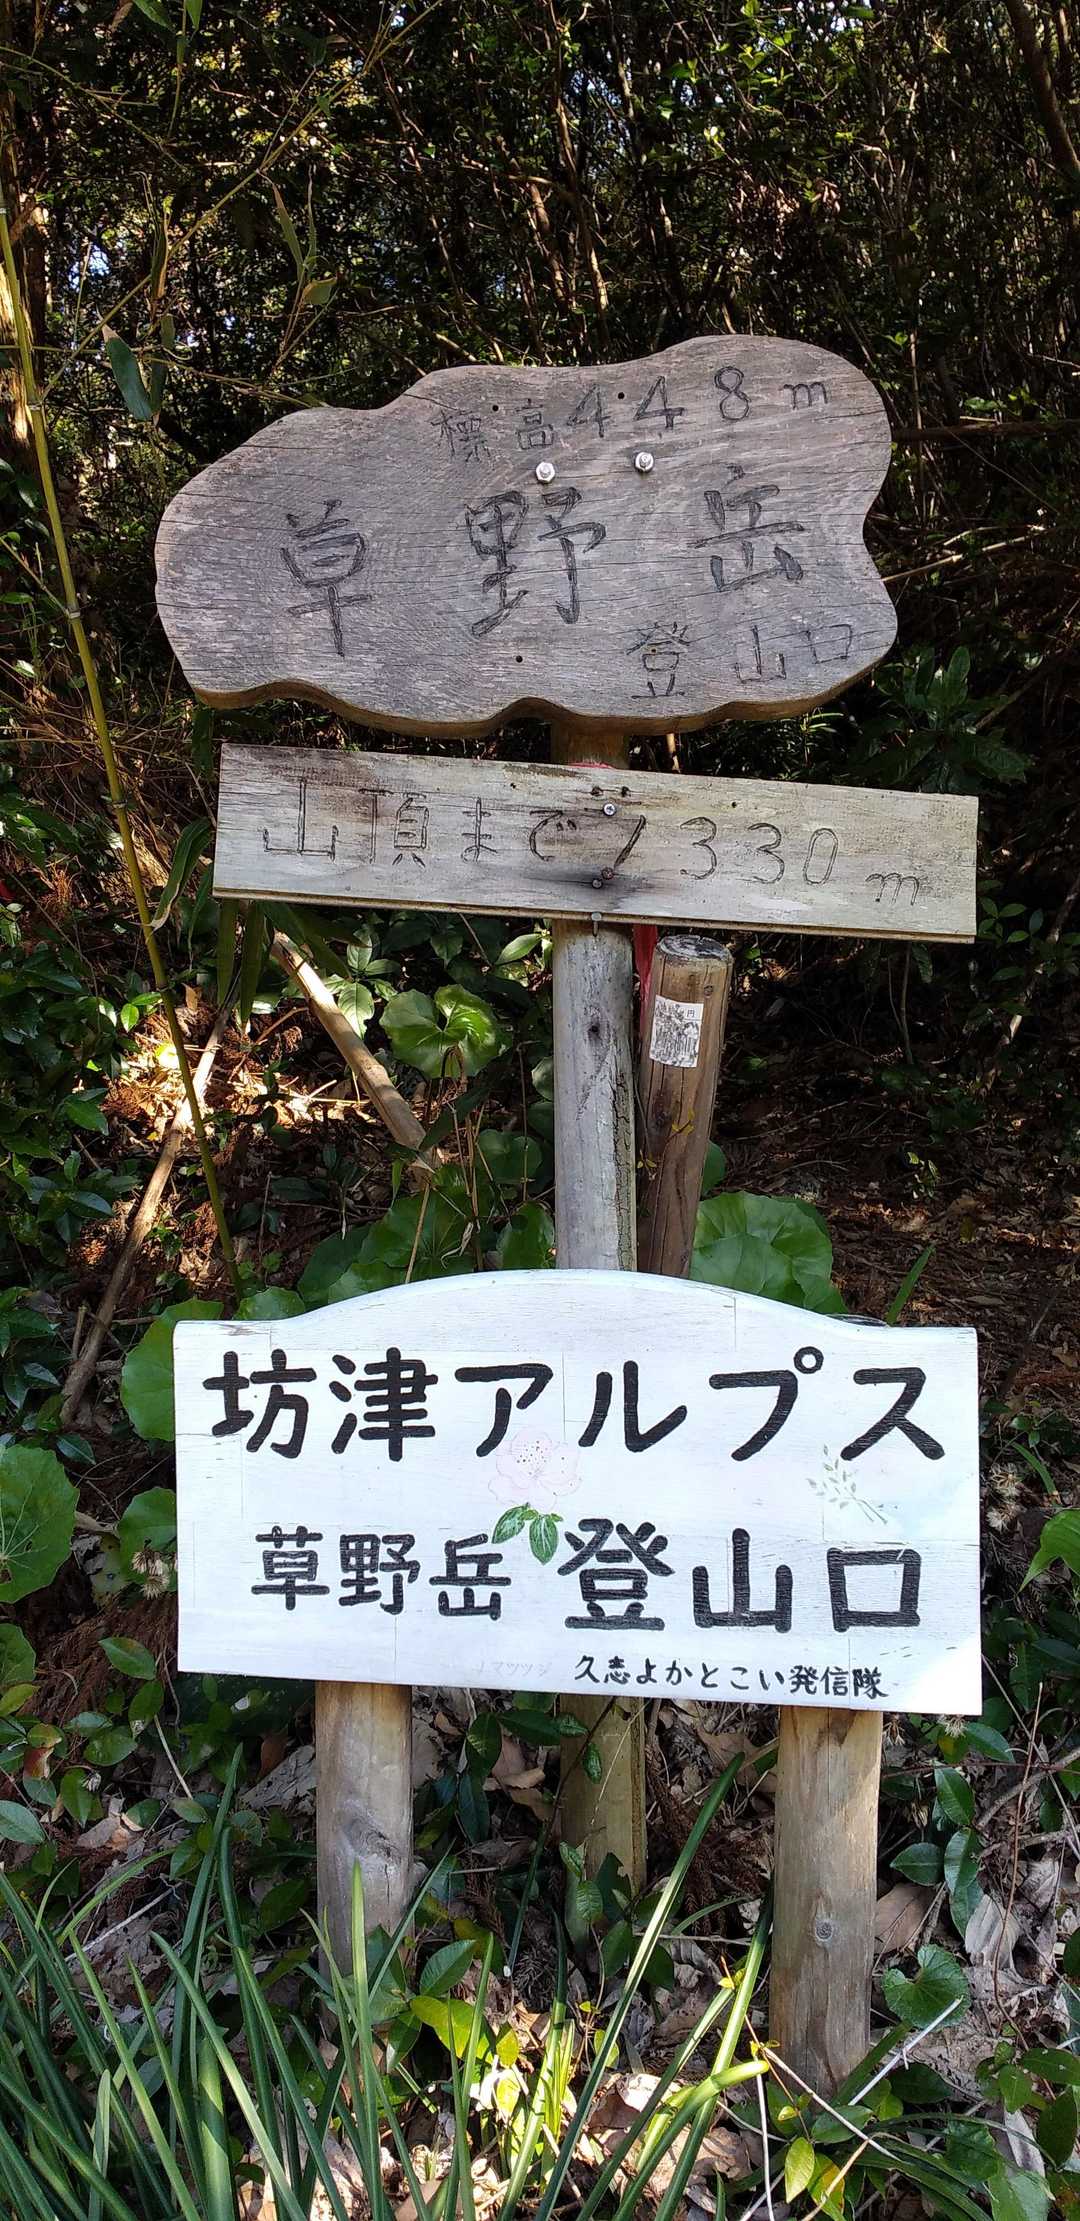 標高448m
草野岳
登山口
山頂まで1330m
円
坊津アルプス
草野岳 登山口
マツツジ
久志よかとこい発信隊